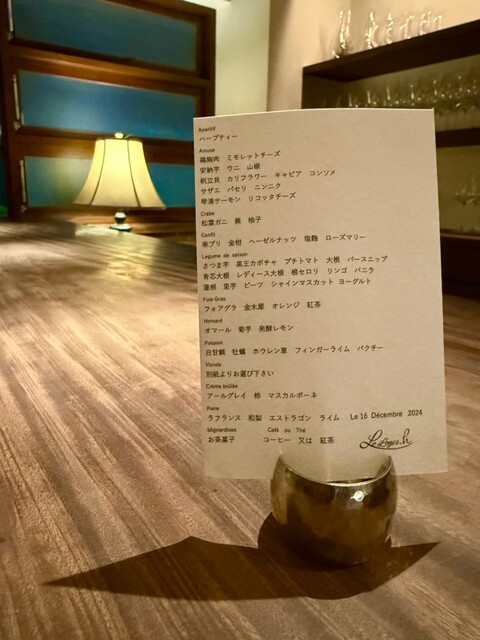 Aperitif
ハーブティー
Amuse
鶏胸肉 ミモレットチーズ
安納芋 ウニ 山椒
帆立貝 カリフラワー キャビア コンソメ
サザエ パセリ ニンニク
琴浦サーモン リコッタチーズ
Crabe
松葉ガニ 蕪 柚子
Confit
寒ブリ 金柑 ヘーゼルナッツ 塩麹 ローズマリー
Legume de saison
さつま芋 黒王カボチャ プチトマト 大根 パースニップ
青芯大根 レディース大根 根セロリ リンゴ バニラ
蓮根 里芋 ビーツ シャインマスカット ヨーグルト
Foie Gras
フォアグラ 金木犀 オレンジ 紅茶
Homard
オマール 菊芋 発酵レモン
Poisson
白甘鯛 牡蠣 ホウレン草 フィンガーライム パクチー
Viande
別紙よりお選び下さい
Crème brûlée
アールグレイ 柿 マスカルポーネ
Poire
ラフランス 和梨 エストラゴン ライム Le 15 Décembre 2024
Mignardises Café ou Thé
お茶菓子 コーヒー 又は 紅茶